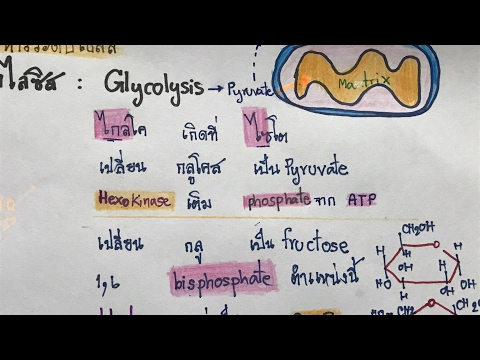 ไลซิส : Glycolysis → Pyruvate
Matrix
ไกลโค เกิดที่ ไซโต
เปลี่ยน กลูโคส เป็น Pyruvate
Hexokinase เติม phosphate จาก ATP
เปลี่ยน กลู เป็น fructose
1,6 bisphosphate ตำแหน่งนี้
CH₂OH
H
O
H
H
OH
H
HO
OH
H
OH